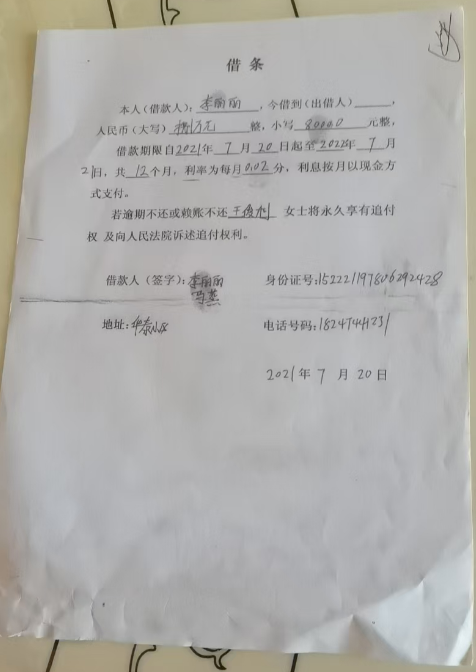 借条
本人(借款人):李丽丽,今借到(出借人)______,
人民币(大写)捌万元 整,小写 80000 元整,
借款期限自2021年 7 月 20 日起至2022年 7 月
21日,共 12 个月,利率为每月0.02 分,利息按月以现金方
式支付。
若逾期不还或赖账不还 王俊 女士将永久享有追付
权 及向人民法院诉述追付权利。
借款人(签字):李丽丽 身份证号:152221197806292428
地址: 电话号码:18247441231
2021 年 7 月 20 日